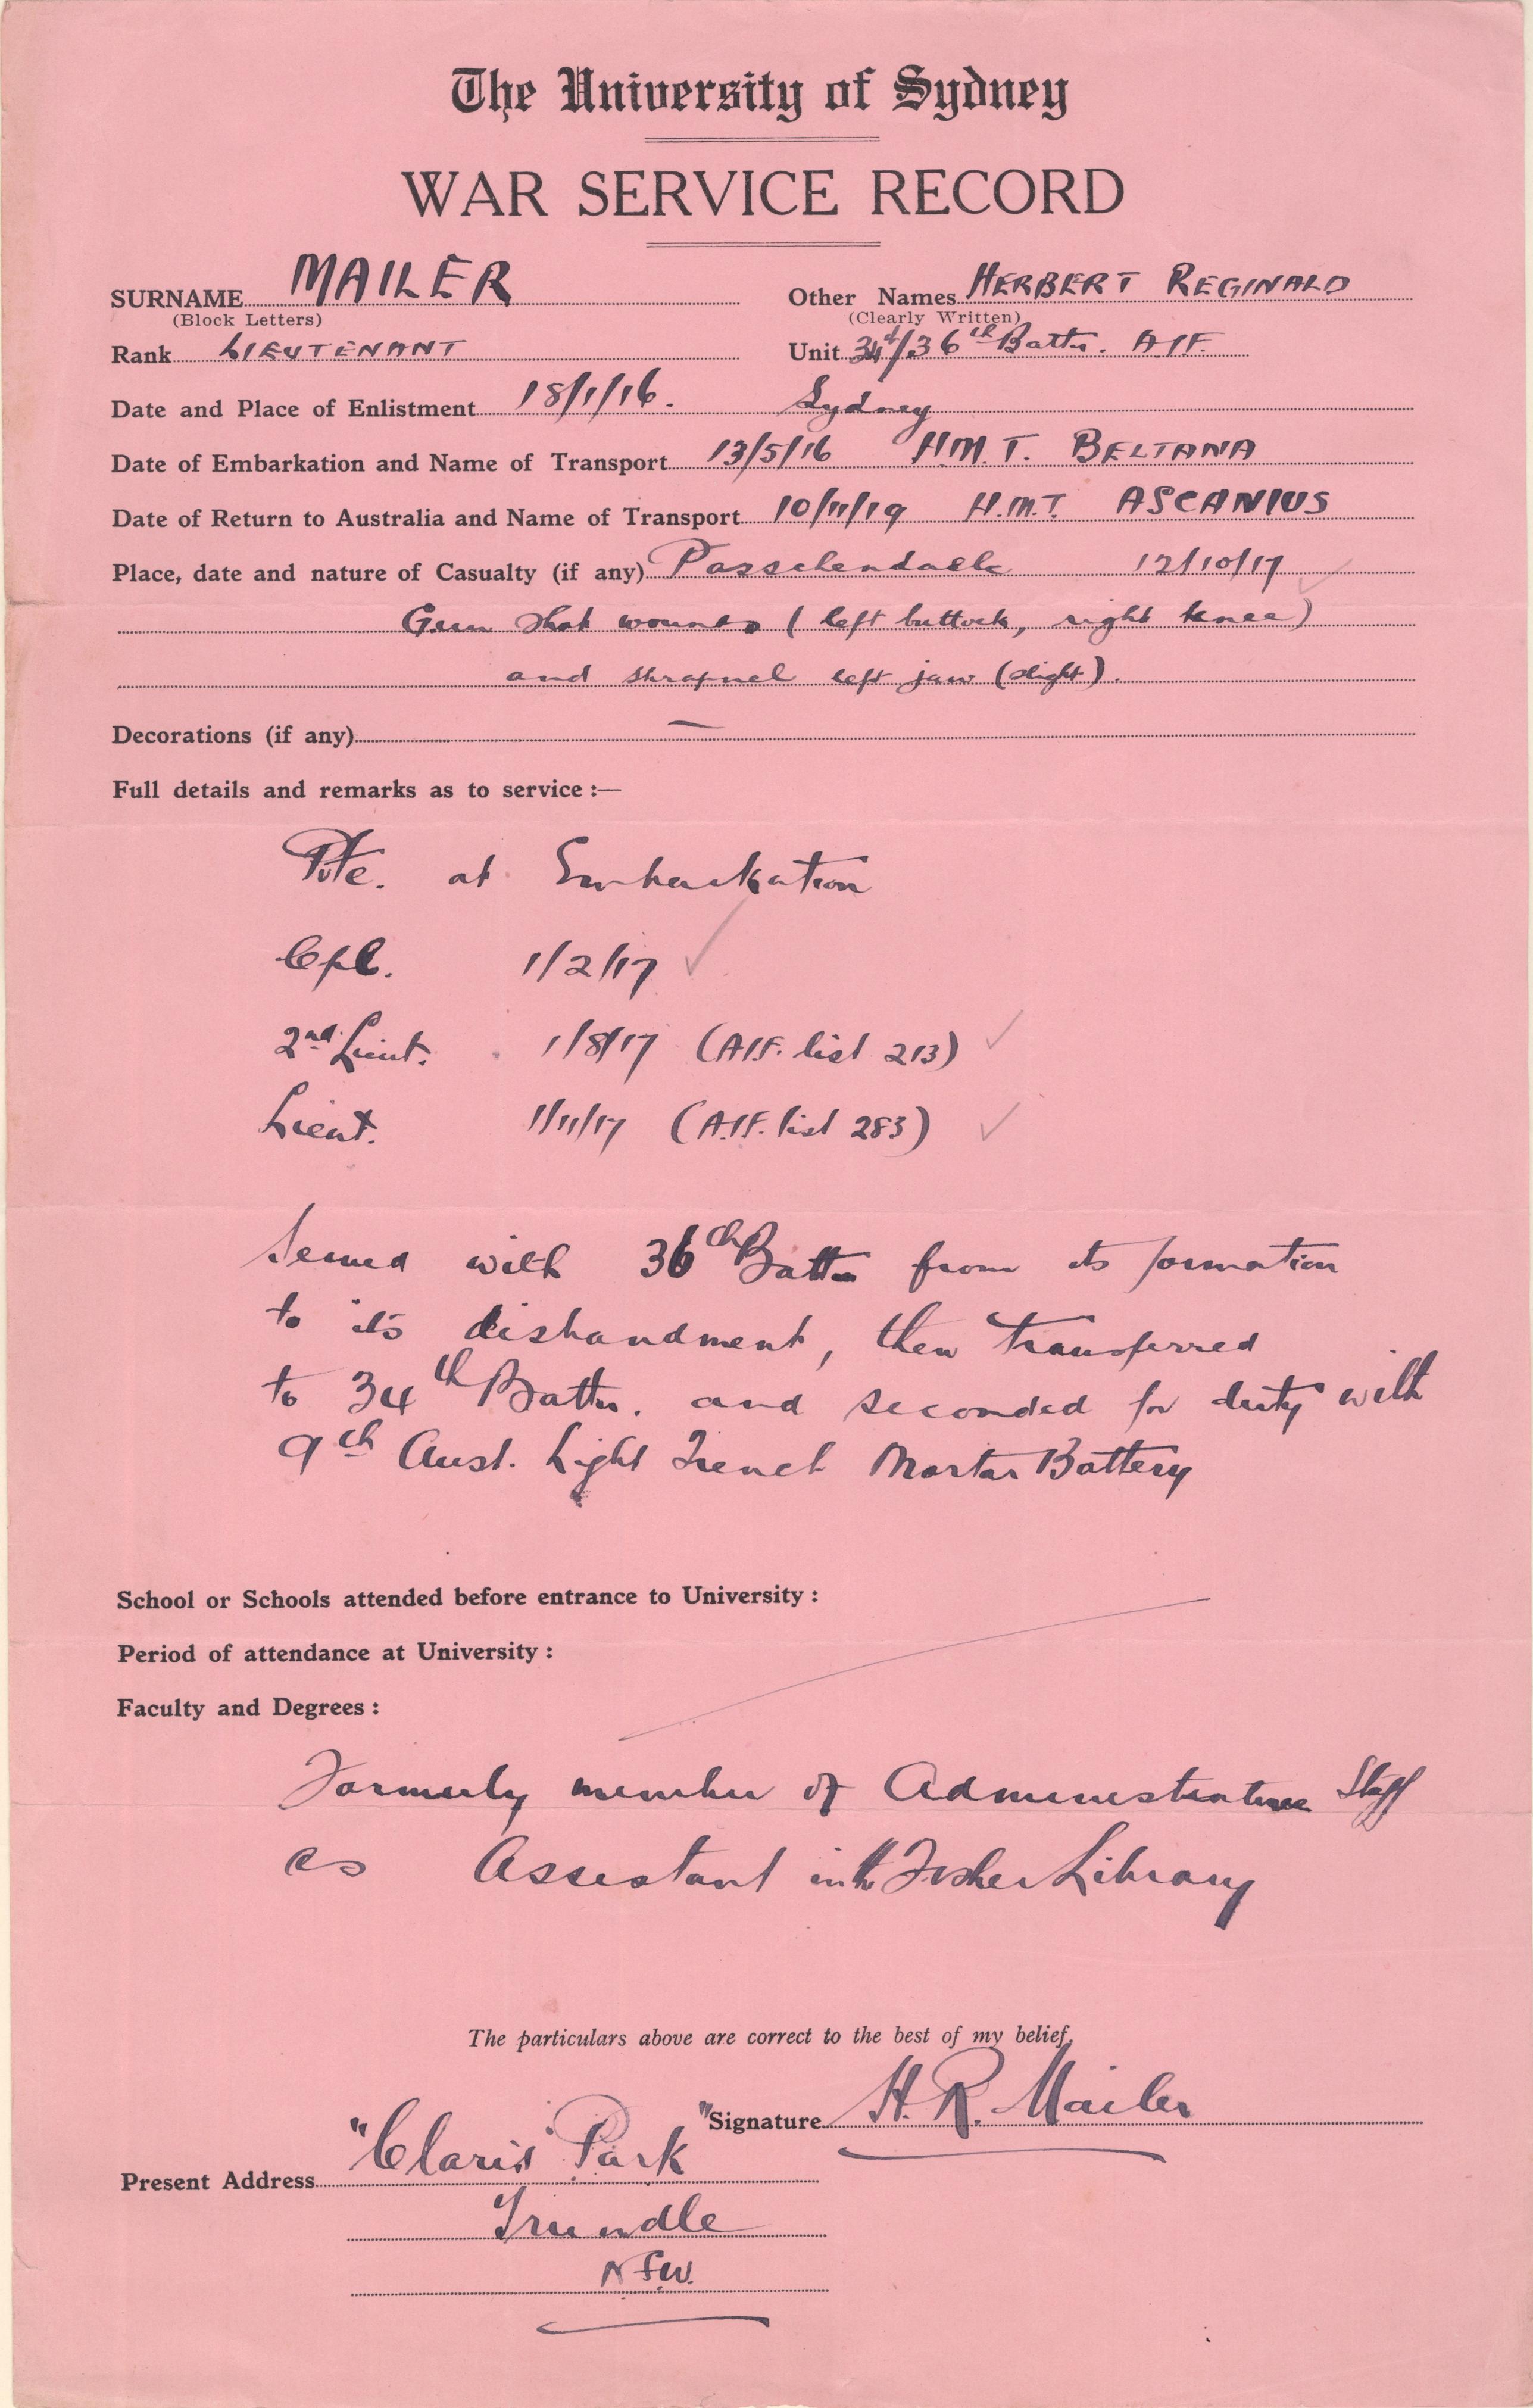 The University of Sydney
WAR SERVICE RECORD
SURNAME MAILER Other Names HERBERT REGINALD
(Block Letters) (Clearly Written)
Rank LIEUTENANT Unit 34th/36th Battn. A.I.F.
Date and Place of Enlistment 18/1/16. Sydney
Date of Embarkation and Name of Transport 13/5/16 H.M.T. BELTANA
Date of Return to Australia and Name of Transport 10/11/19 H.M.T. ASCANIUS
Place, date and nature of Casualty (if any) Passchendaele 12/10/17
Gun shot wounds (left buttock, right knee)
and shrapnel left jaw (slight).
Decorations (if any) —
Full details and remarks as to service :—
Pte. at Embarkation
Cpl. 1/2/17
2nd Lieut. 1/8/17 (A.I.F. list 213)
Lieut. 1/11/17 (A.I.F. list 283)
Served with 36th Battn from its formation
to its disbandment, then transferred
to 34th Battn. and seconded for duty with
9th Aust. Light Trench Mortar Battery
School or Schools attended before entrance to University :
Period of attendance at University :
Faculty and Degrees :
Formerly member of Administrative Staff
as Assistant in the Fisher Library
The particulars above are correct to the best of my belief,
Signature H. R. Mailer
Present Address "Claris Park"
Trundle
N.S.W.